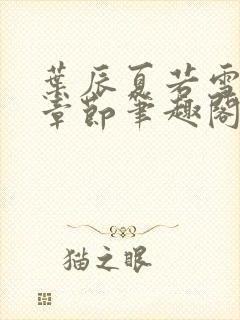 葉辰夏若雪
章節筆趣閣
猫之眼